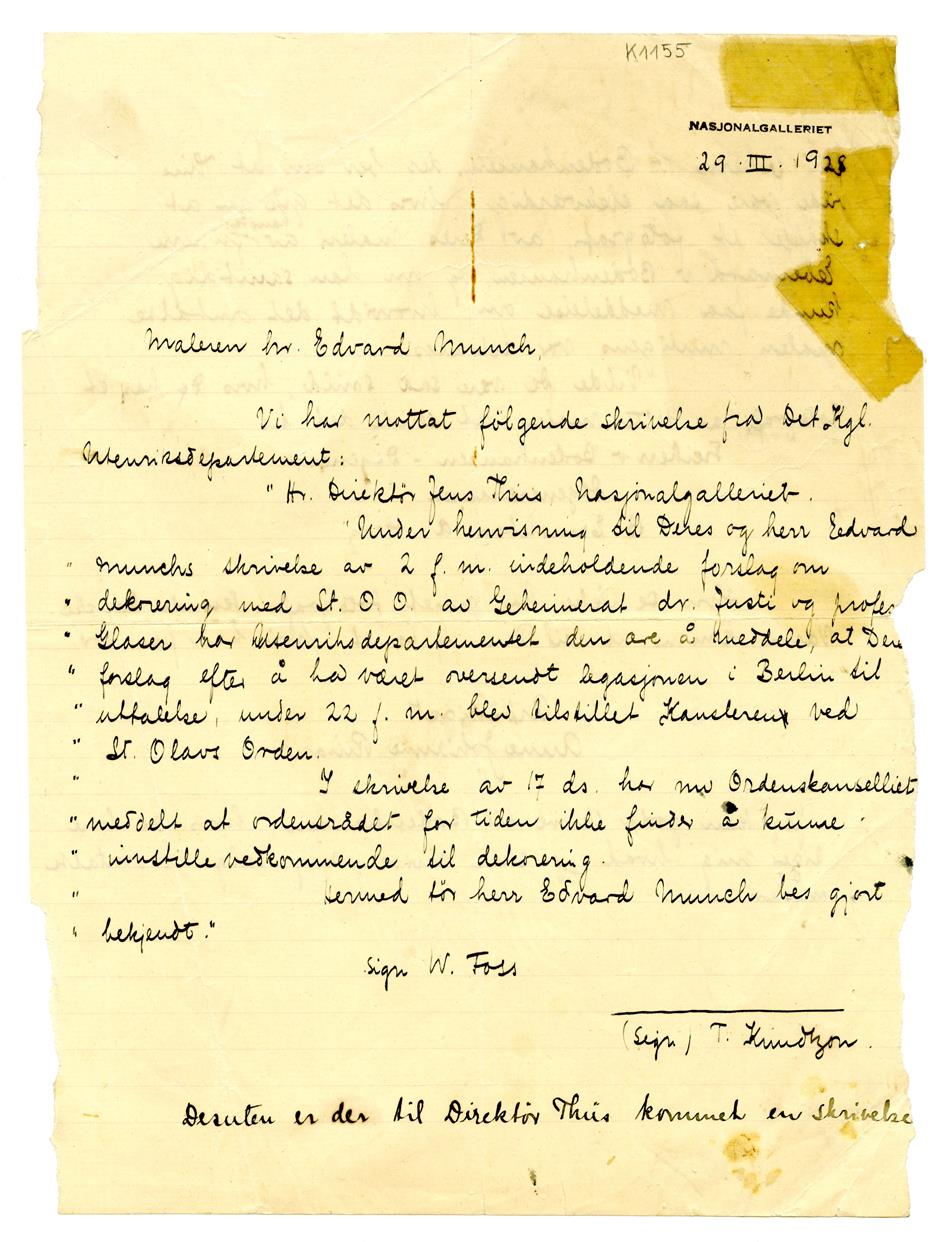 K1155
NASJONALGALLERIET
29.III.1928
Maleren hr. Edvard Munch,
Vi har mottat følgende skrivelse fra Det Kgl.
Utenriksdepartement:
"Hr. Direktør Jens Thiis, Nasjonalgalleriet.
"Under henvisning til Deres og herr Eedvard
" Munchs skrivelse av 2 f. m. indeholdende forslag om
" dekorering med St. O O. av Geheimerat dr. Justi og profes
" Glaser har Utenriksdepartementet den ære å meddele, at Dere
" forslag efter å ha været oversendt legasjonen i Berlin til
" uttalelse, under 22 f. m. blev tilstillet Kansleren ved
" St. Olavs Orden.
" I skrivelse av 17 ds. har nu Ordenskanselliet
" meddelt at ordensrådet for tiden ikke finder å kunne
" innstille vedkommende til dekorering.
" Hermed tør herr Edvard Munch bes gjort
" bekjendt."
Sign W. Foss
(Sign) T. Knudtzon.
Desuten er der til Direktør Thiis kommet en skrivelse